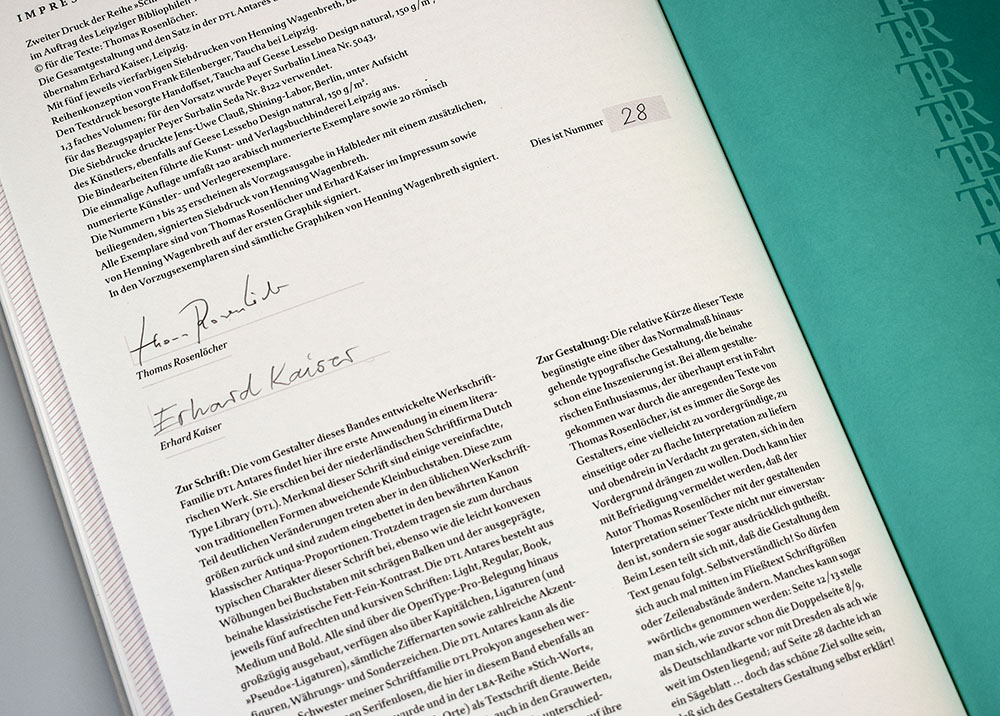 IMPRES
Zweiter Druck der Reihe »Sti
im Auftrag des Leipziger Bibliophilen
© für die Texte: Thomas Rosenlöcher.
Die Gesamtgestaltung und den Satz in der DTL Antares
übernahm Erhard Kaiser, Leipzig.
Mit fünf jeweils vierfarbigen Siebdrucken von Henning Wagenbreth, Be
Reihenkonzeption von Frank Eilenberger, Taucha bei Leipzig.
Den Textdruck besorgte Handoffset, Taucha auf Geese Lessebo Design natural, 150 g/m²,
1,3 faches Volumen; für den Vorsatz wurde Peyer Surbalin Linea Nr. 5043,
für das Bezugspapier Peyer Surbalin Seda Nr. 8122 verwendet.
Die Siebdrucke druckte Jens-Uwe Clauß, Shining-Labor, Berlin, unter Aufsicht
des Künstlers, ebenfalls auf Geese Lessebo Design natural, 150 g/m².
Die Bindearbeiten führte die Kunst- und Verlagsbuchbinderei Leipzig aus.
Die einmalige Auflage umfaßt 120 arabisch numerierte Exemplare sowie 20 römisch
numerierte Künstler- und Verlegerexemplare.
Die Nummern 1 bis 25 erscheinen als Vorzugsausgabe in Halbleder mit einem zusätzlichen,
beiliegenden, signierten Siebdruck von Henning Wagenbreth.
Alle Exemplare sind von Thomas Rosenlöcher und Erhard Kaiser im Impressum sowie
von Henning Wagenbreth auf der ersten Graphik signiert.
In den Vorzugsexemplaren sind sämtliche Graphiken von Henning Wagenbreth signiert.
Dies ist Nummer 28
Thomas Rosenlöcher
Erhard Kaiser
Erhard Kaiser
Zur Schrift: Die vom Gestalter dieses Bandes entwickelte Werkschrift-
Familie DTL Antares findet hier ihre erste Anwendung in einem litera-
rischen Werk. Sie erschien bei der niederländischen Schriftfirma Dutch
Type Library (DTL). Merkmal dieser Schrift sind einige vereinfachte,
von traditionellen Formen abweichende Kleinbuchstaben. Diese zum
Teil deutlichen Veränderungen treten aber in den üblichen Werkschrift-
größen zurück und sind zudem eingebettet in den bewährten Kanon
klassischer Antiqua-Proportionen. Trotzdem tragen sie zum durchaus
typischen Charakter dieser Schrift bei, ebenso wie die leicht konvexen
Wölbungen bei Buchstaben mit schrägen Balken und der ausgeprägte,
beinahe klassizistische Fett-Fein-Kontrast. Die DTL Antares besteht aus
jeweils fünf aufrechten und kursiven Schriften: Light, Regular, Book,
Medium und Bold. Alle sind über die OpenType-Pro-Belegung hinaus
großzügig ausgebaut, verfügen also über Kapitälchen, Ligaturen (und
»Pseudo«-Ligaturen), sämtliche Ziffernarten sowie zahlreiche Akzent-
figuren, Währungs- und Sonderzeichen. Die DTL Antares kann als die
Schwester meiner Schriftfamilie DTL Prokyon angesehen wer-
en Serifenlosen, die hier in diesem Band ebenfalls an
wurde und in der LBA-Reihe »Stich-Wort«,
Orte) als Textschrift diente. Beide
auch in den Grauwerten,
unterschied-
auf ihre
Zur Gestaltung: Die relative Kürze dieser Texte
begünstigte eine über das Normalmaß hinaus-
gehende typografische Gestaltung, die beinahe
schon eine Inszenierung ist. Bei allem gestalte-
rischen Enthusiasmus, der überhaupt erst in Fahrt
gekommen war durch die anregenden Texte von
Thomas Rosenlöcher, ist es immer die Sorge des
Gestalters, eine vielleicht zu vordergründige, zu
einseitige oder zu flache Interpretation zu liefern
und obendrein in Verdacht zu geraten, sich in den
Vordergrund drängen zu wollen. Doch kann hier
mit Befriedigung vermeldet werden, daß der
Autor Thomas Rosenlöcher mit der gestaltenden
Interpretation seiner Texte nicht nur einverstan-
den ist, sondern sie sogar ausdrücklich gutheißt.
Beim Lesen teilt sich mit, daß die Gestaltung dem
Text genau folgt. Selbstverständlich! So dürfen
sich auch mal mitten im Fließtext Schriftgrößen
oder Zeilenabstände ändern. Manches kann sogar
»wörtlich« genommen werden: Seite 12/13 stelle
man sich, wie zuvor schon die Doppelseite 8/9,
als Deutschlandkarte vor mit Dresden als ach wie
weit im Osten liegend; auf Seite 28 dachte ich an
ein Sägeblatt … doch das schöne Ziel sollte sein,
daß sich des Gestalters Gestaltung selbst erklärt!